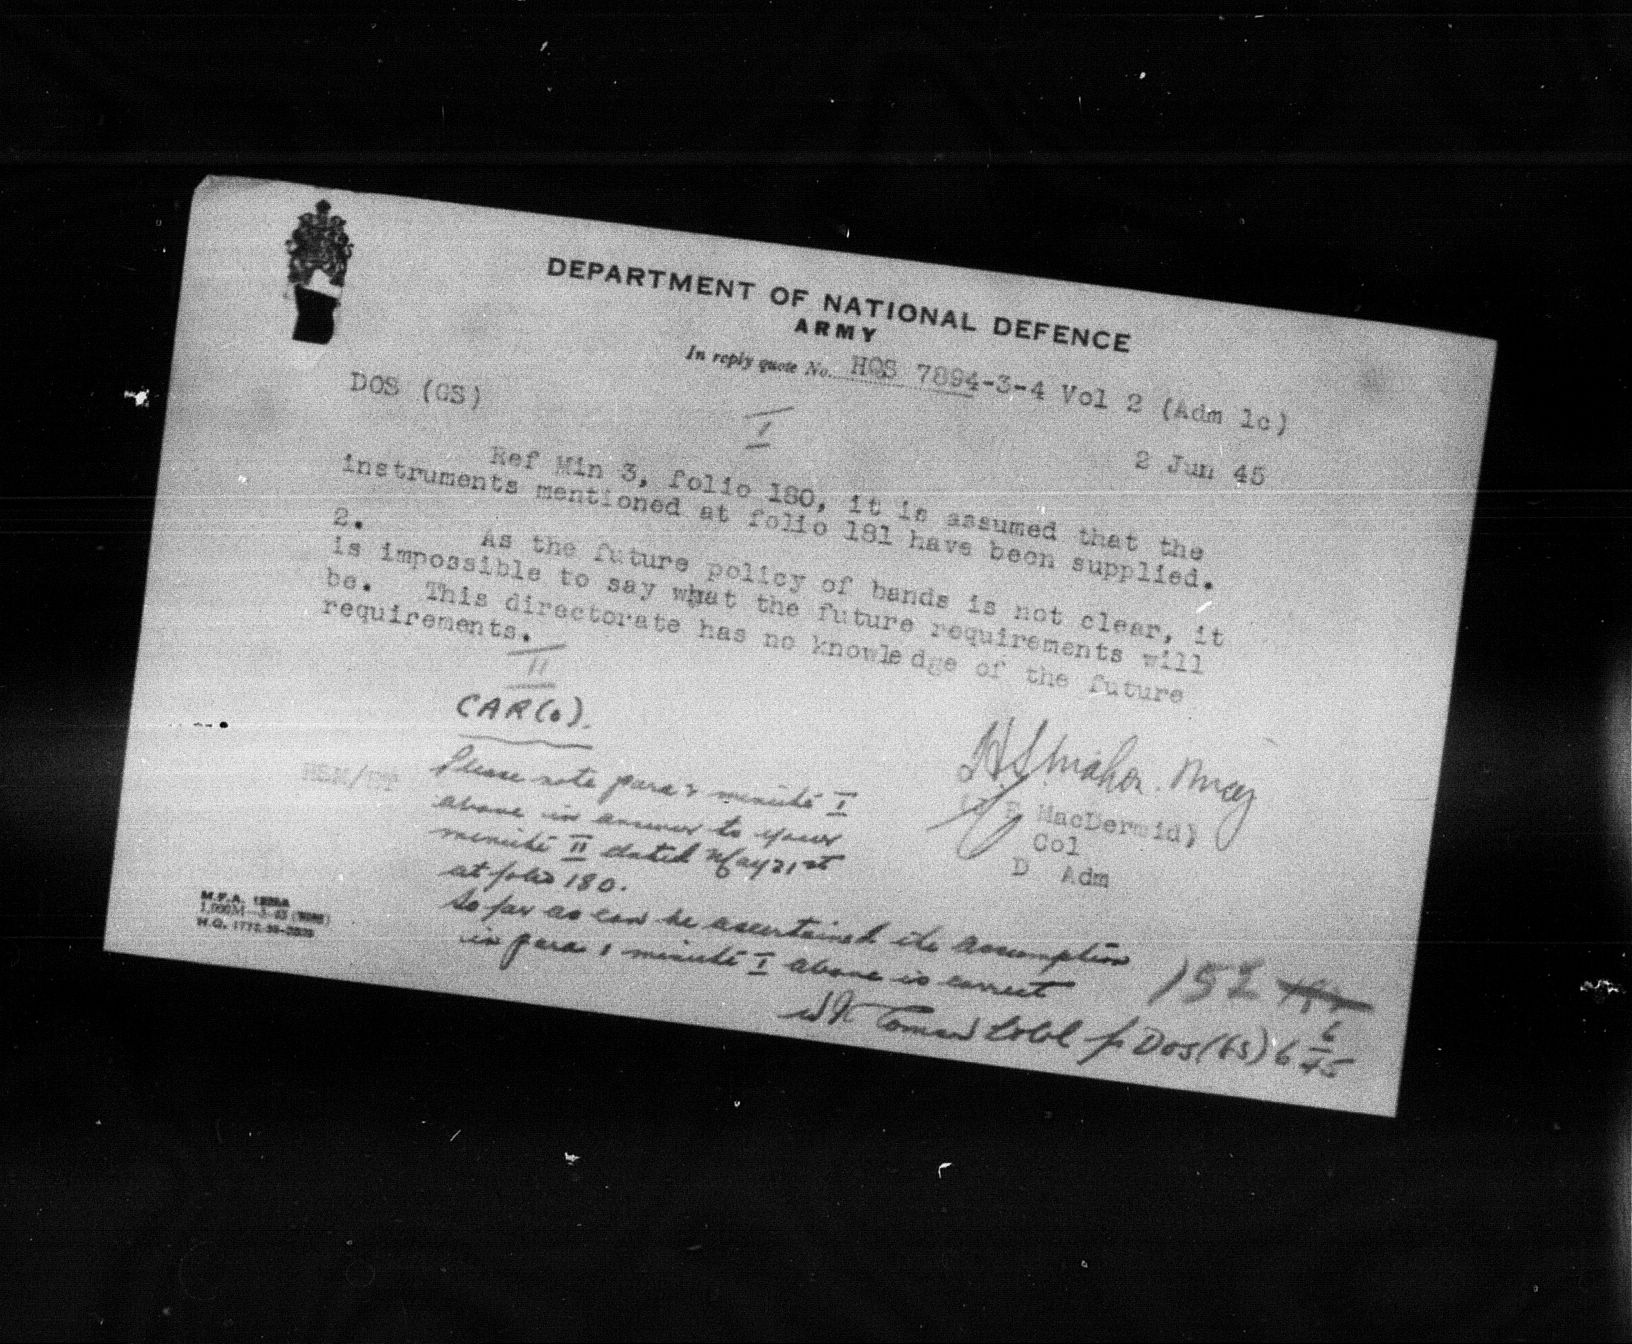 DEPARTMENT OF NATIONAL DEFENCE
ARMY
In reply quote No. HQS 7894-3-4 Vol 2 (Adm 1c)
DOS (GS)
I
2 Jun 45
Ref Min 3, folio 180, it is assumed that the
instruments mentioned at folio 181 have been supplied.
2. As the future policy of bands is not clear, it
is impossible to say what the future requirements will
be. This directorate has no knowledge of the future
requirements.
II
CAR(o).
Please note para 2 minute I
above in answer to your
minute II dated May 21st
at folio 180.
So far as can be ascertained the assumption
in para 1 minute I above is correct
MacDermid)
Col
D Adm
M.F.A.
H.Q. 1772-39-
152
Lt Col for DOS(GS) 6 6/45